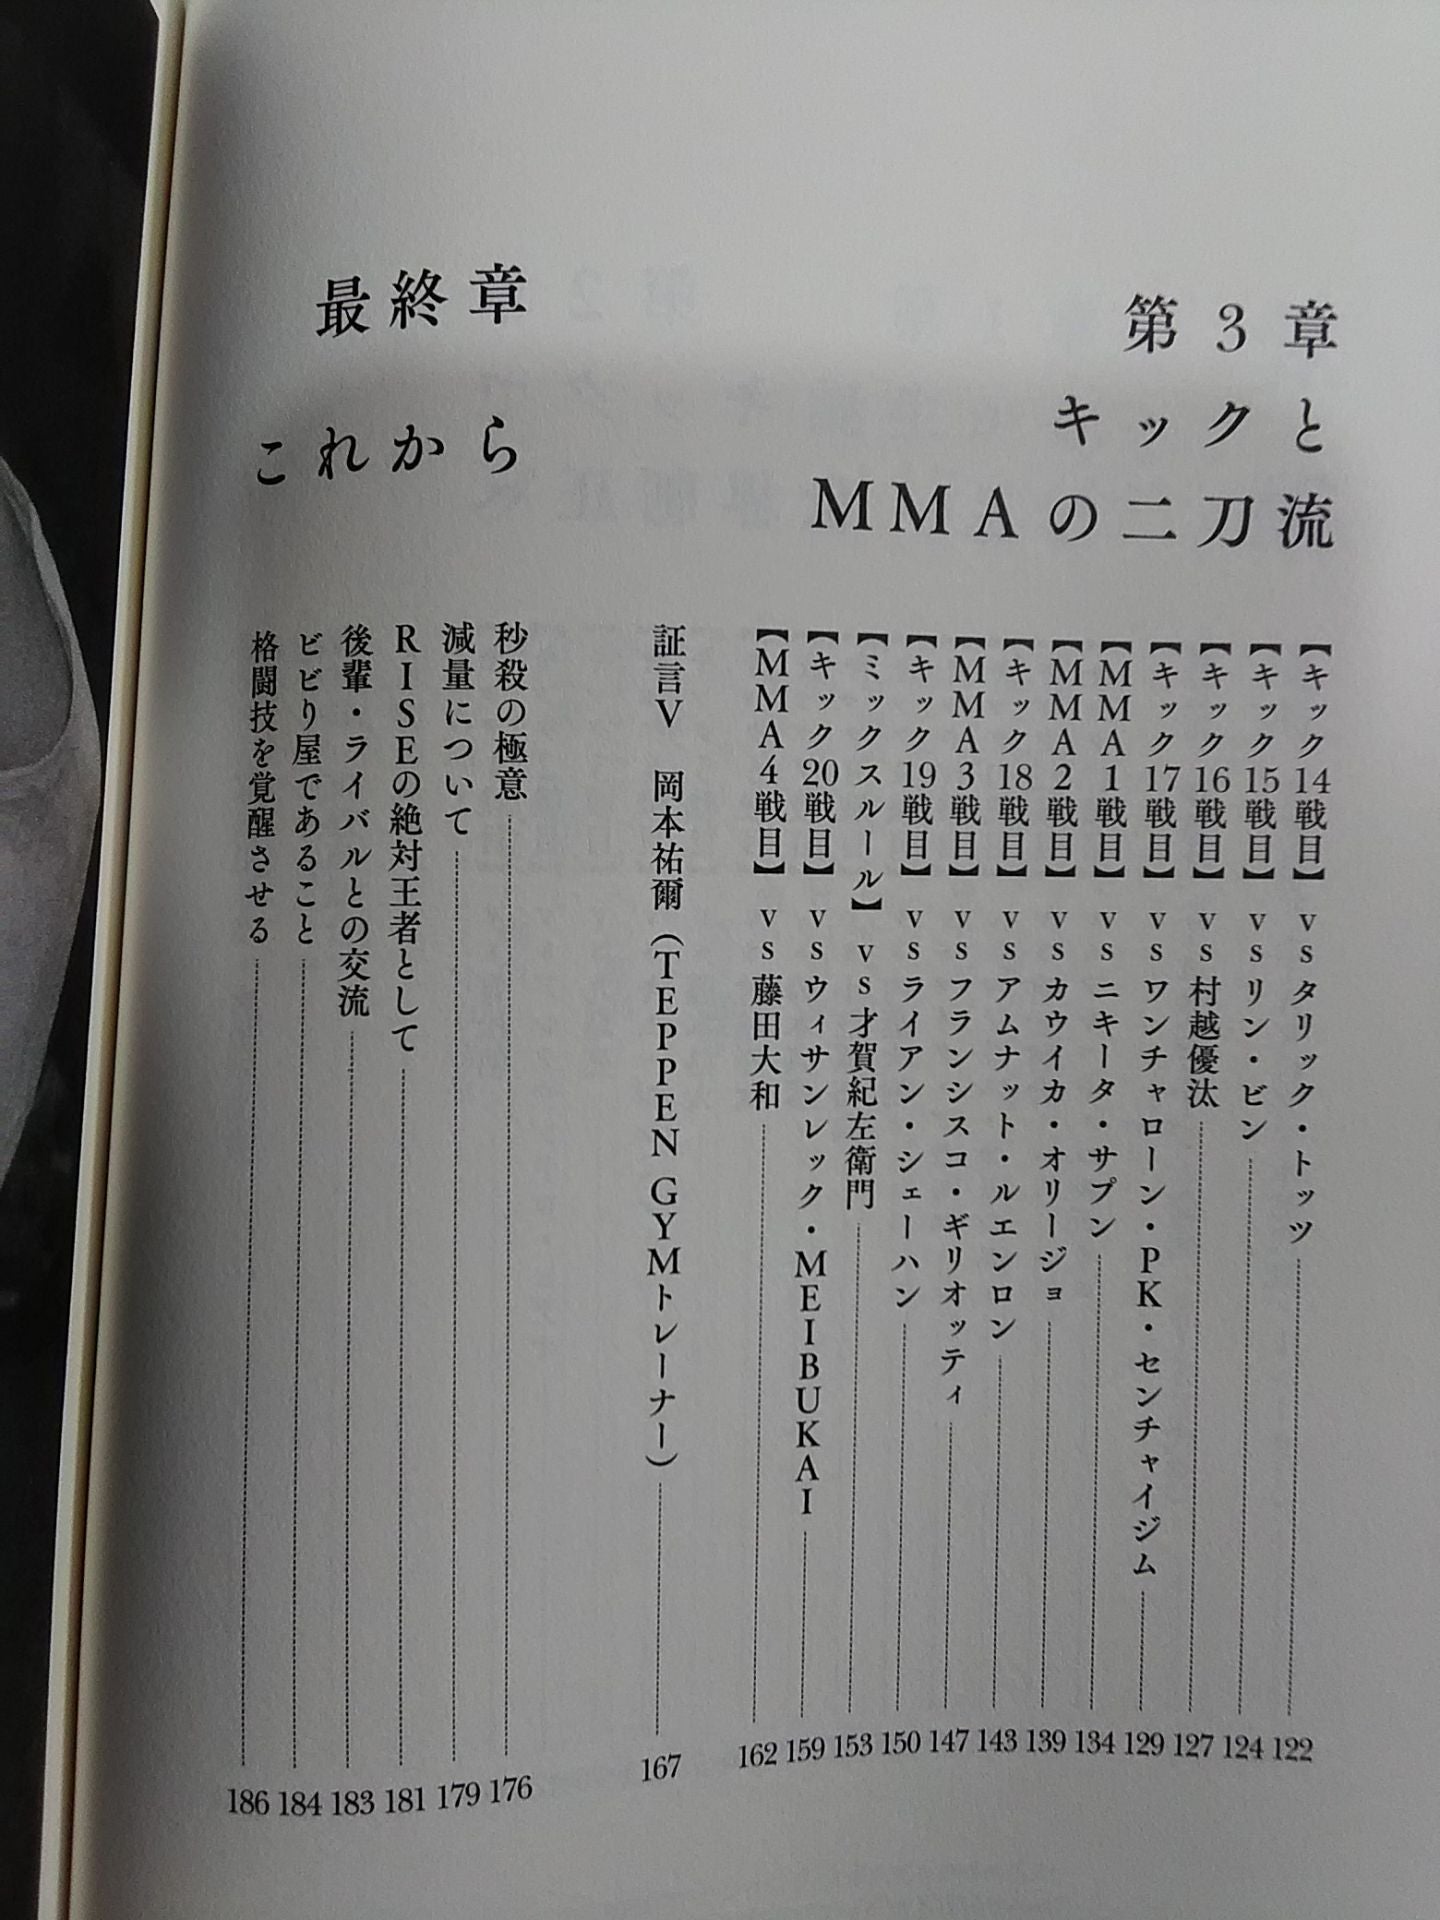 第3章
キックと
MMAの二刀流
【キック14戦目】vsタリック・トッツ 122
【キック15戦目】vsリン・ビン 124
【キック16戦目】vs村越優汰 127
【キック17戦目】vsワンチャローン・PK・センチャイジム 129
【MMA1戦目】vsニキータ・サプン 134
【MMA2戦目】vsカウイカ・オリージョ 139
【キック18戦目】vsアムナット・ルエンロン 143
【MMA3戦目】vsフランシスコ・ギリオッティ 147
【キック19戦目】vsライアン・シェーハン 150
【ミックスルール】vs才賀紀左衛門 153
【キック20戦目】vsウィサンレック・MEIBUKAI 159
【MMA4戦目】vs藤田大和 162
証言V 岡本祐爾（TEPPEN GYMトレーナー） 167
最終章
これから
秒殺の極意 176
減量について 179
RISEの絶対王者として 181
後輩・ライバルとの交流 183
ビビり屋であること 184
格闘技を覚醒させる 186